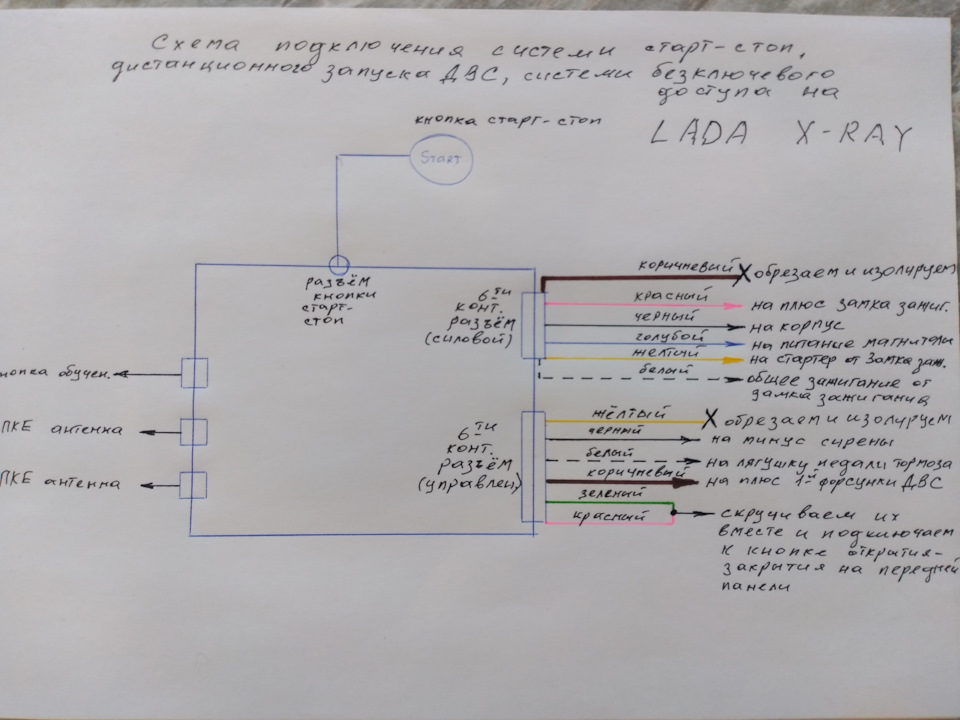 Схема подключения системы старт-стоп,
дистанционного запуска ДВС, системы безключевого
доступа на
LADA X-RAY
кнопка старт-стоп
Start
разъём
кнопки
старт-
стоп
6-ти
конт.
разъём
(силовой)
коричневый
обрезаем и изолируем
красный
на плюс замка зажиг.
черный
на корпус
голубой
на питание магнитолы
желтый
на стартер от замка заж.
белый
общее зажигание от
замка зажигания
нопка обучен.
ПКЕ антенна
ПКЕ антенна
6-ти
конт.
разъём
(управлен)
жёлтый
обрезаем и изолируем
черный
на минус сирены
белый
на лягушку педали тормоза
коричневый
на плюс 1-й форсунки ДВС
зеленый
красный
скручиваем их
вместе и подключаем
к кнопке открытия-
закрытия на передней
панели